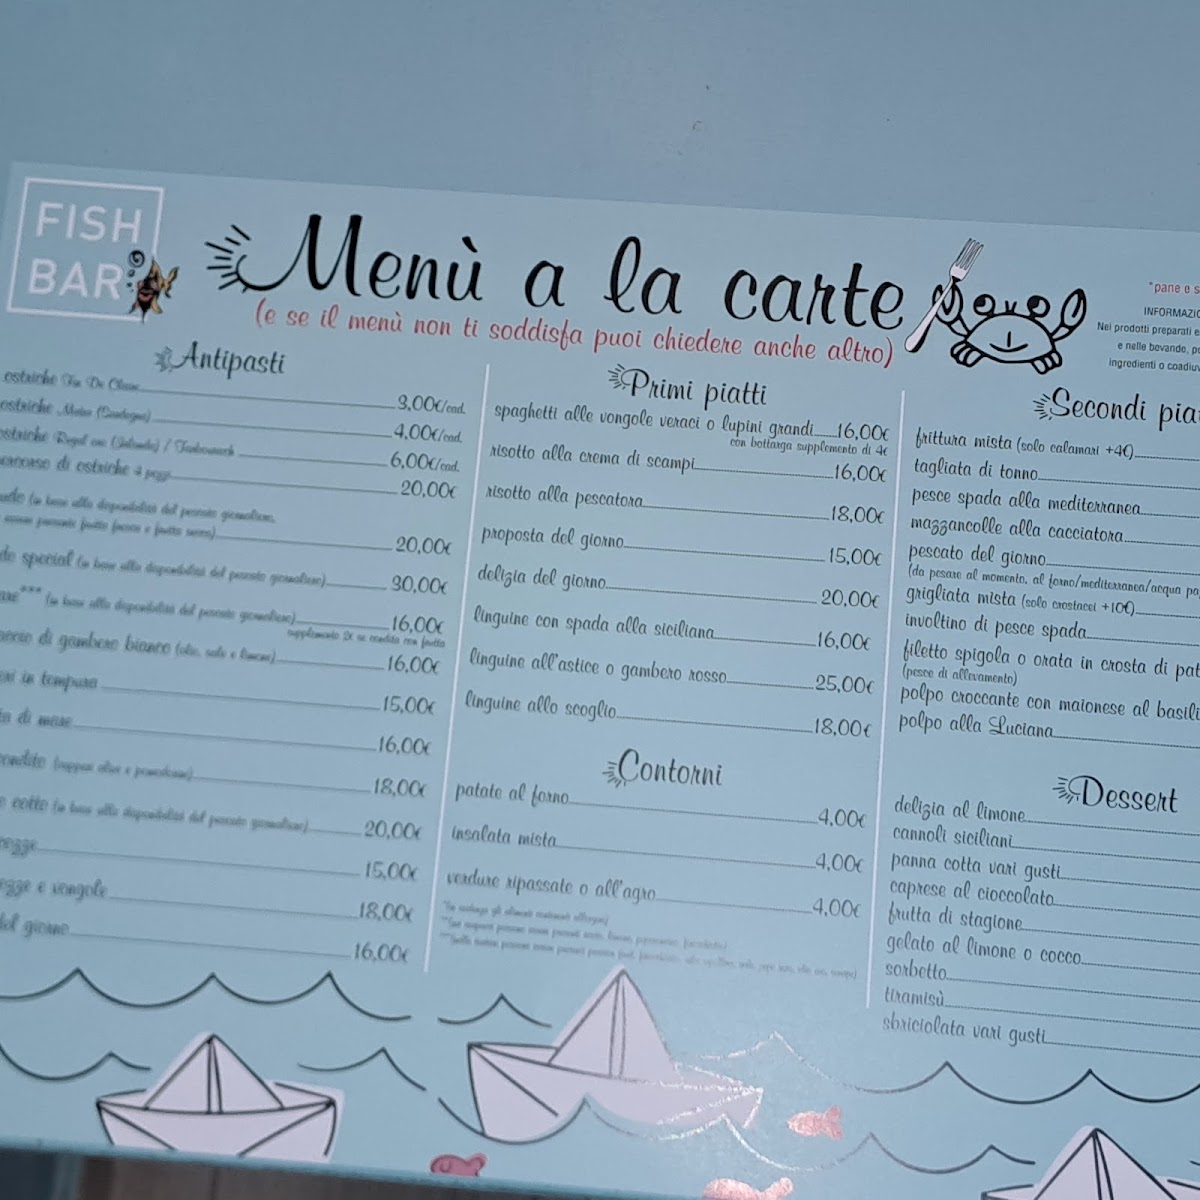 FISH
BAR
Menù a la carte
(e se il menù non ti soddisfa puoi chiedere anche altro)
*pane e s
INFORMAZIO
Nei prodotti preparati e
e nelle bevande, po
ingredienti o coadiuv
Antipasti
ostriche Fin De Claire 3,00€/cad.
ostriche 4,00€/cad.
ostriche Regal 6,00€/cad.
percorso di ostriche 4 pezzi 20,00€
(in base alla disponibilità del pescato giornaliero,
frutta fresca e frutta secca) 20,00€
special (in base alla disponibilità del pescato giornaliero) 30,00€
*** (in base alla disponibilità del pescato giornaliero) 16,00€
supplemento 2€ se condita con frutta
di gambero bianco (olio, sale e limone) 16,00€
in tempura 15,00€
di mare 16,00€
(capperi olive e pomodorini) 18,00€
cotto (in base alla disponibilità del pescato giornaliero) 20,00€
15,00€
e vongole 18,00€
del giorno 16,00€
Primi piatti
spaghetti alle vongole veraci o lupini grandi 16,00€
con bottarga supplemento di 4€
risotto alla crema di scampi 16,00€
risotto alla pescatora 18,00€
proposta del giorno 15,00€
delizia del giorno 20,00€
linguine con spada alla siciliana 16,00€
linguine all'astice o gambero rosso 25,00€
linguine allo scoglio 18,00€
Contorni
patate al forno 4,00€
insalata mista 4,00€
verdure ripassate o all'agro 4,00€
Secondi pia
frittura mista (solo calamari +4€)
tagliata di tonno
pesce spada alla mediterranea
mazzancolle alla cacciatora
pescato del giorno
(da pesare al momento, al forno/mediterranea/acqua pa
grigliata mista (solo crostacei +10€)
involtino di pesce spada
filetto spigola o orata in crosta di pat
(pesce di allevamento)
polpo croccante con maionese al basili
polpo alla Luciana
Dessert
delizia al limone
cannoli siciliani
panna cotta vari gusti
caprese al cioccolato
frutta di stagione
gelato al limone o cocco
sorbetto
tiramisù
sbriciolata vari gusti